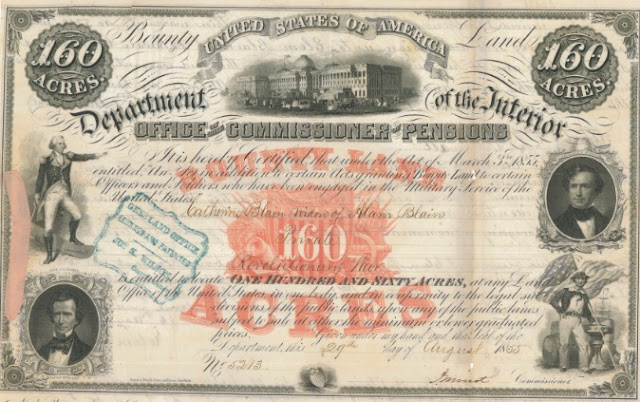 160 ACRES.
Bounty Land
UNITED STATES OF AMERICA
160 ACRES.
Department of the Interior
OFFICE OF COMMISSIONER OF PENSIONS
It is hereby Certified that under the Act of March 3rd 1855,
entitled "An Act in addition to certain Acts granting Bounty Land to certain
Officers and Soldiers who have been engaged in the Military Service of the
United States"
Catherine Blain widow of Alam Blain
Private
160
Revolutionary War
is entitled to locate ONE HUNDRED AND SIXTY ACRES, at any Land
Office of the United States in one body, and in conformity to the legal sub
divisions of the public lands, upon any of the public lands
subject to sale at either the minimum or lower graduated
prices. Given under my hand and the seal of the
Department, this 29th day of August 1855
No. 5213
Commissioner
GENL LAND OFFICE